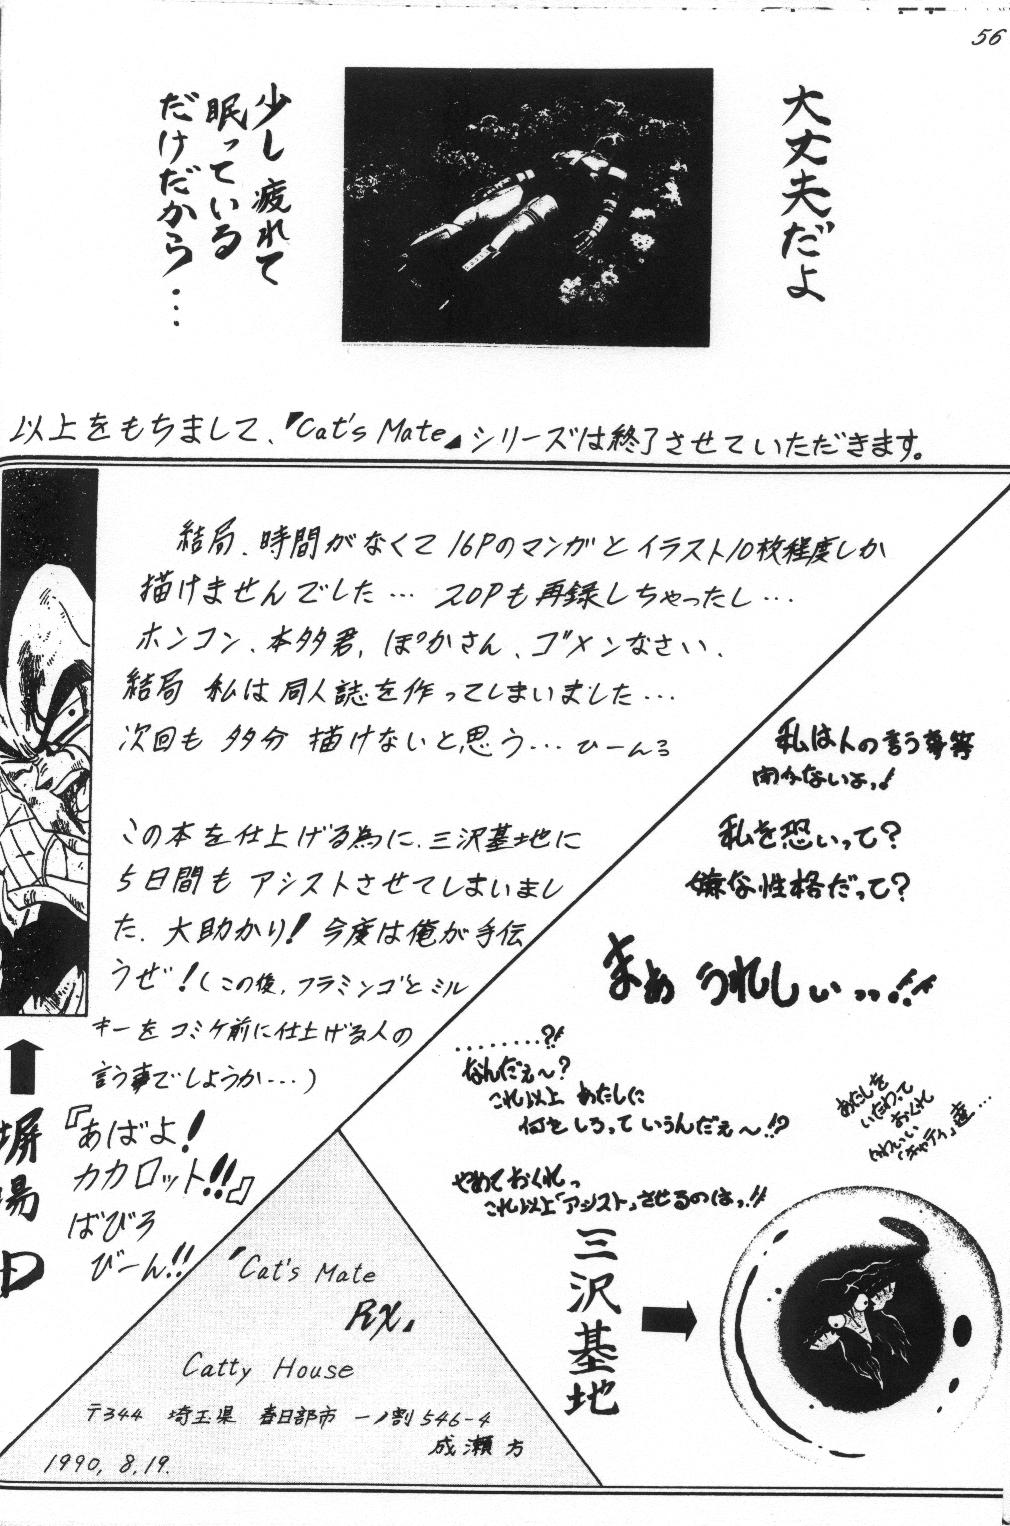 56
大丈夫だよ
少し疲れて
眠っている
だけだから…
以上をもちまして、『Cat's Mate』シリーズは終了させていただきます。
結局、時間がなくて16Pのマンガとイラスト10枚程度しか
描けませんでした… 20Pも再録しちゃったし…
ホンコン、本多君、ぽかさん、ゴメンなさい、
結局 私は同人誌を作ってしまいました…
次回も 多分 描けないと思う… ひーんろ
この本を仕上げる為に、三沢基地に
5日間も アシストさせてしまいまし
た、大助かり! 今度は俺が手伝
うぜ!(この後、フラミンゴとミル
キーをコミケ前に仕上げる人の
言う事でしょうか…)
塀場D
『あばよ!
カカロット!!』
ばびろ
びーん!!
私は人の言う事等
聞かないよっ!
私を恐いって?
嫌な性格だって?
まぁ うれしぃ…!!
………?!
なんだぇ〜?
これ以上 あたしに
何をしろって いうんだぇ〜!!?
やめておくれっ
これ以上「アシスト」させるのはっ!!
あたしを
いたわって
おくれ
かわいい
「チャティ」達…
三沢基地
『Cat's Mate
RX』
Catty House
〒344 埼玉県 春日部市 一ノ割 546-4
成瀬方
1990, 8, 19.